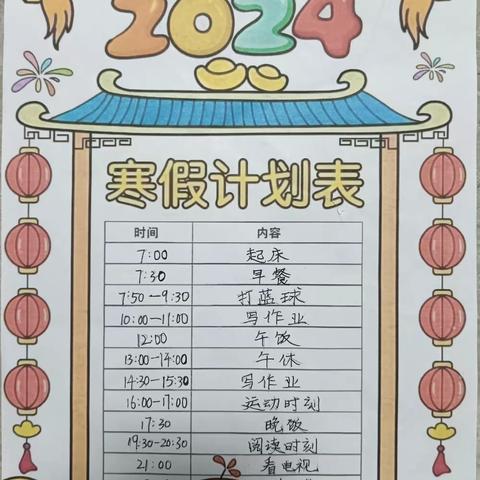 2024
寒假计划表
时间 内容
7:00 起床
7:30 早餐
7:50-9:30 打蓝球
10:00-11:00 写作业
12:00 午饭
13:00-14:00 午休
14:30-15:30 写作业
16:00-17:00 运动时刻
17:30 晚饭
19:30-20:30 阅读时刻
21:00 看电视